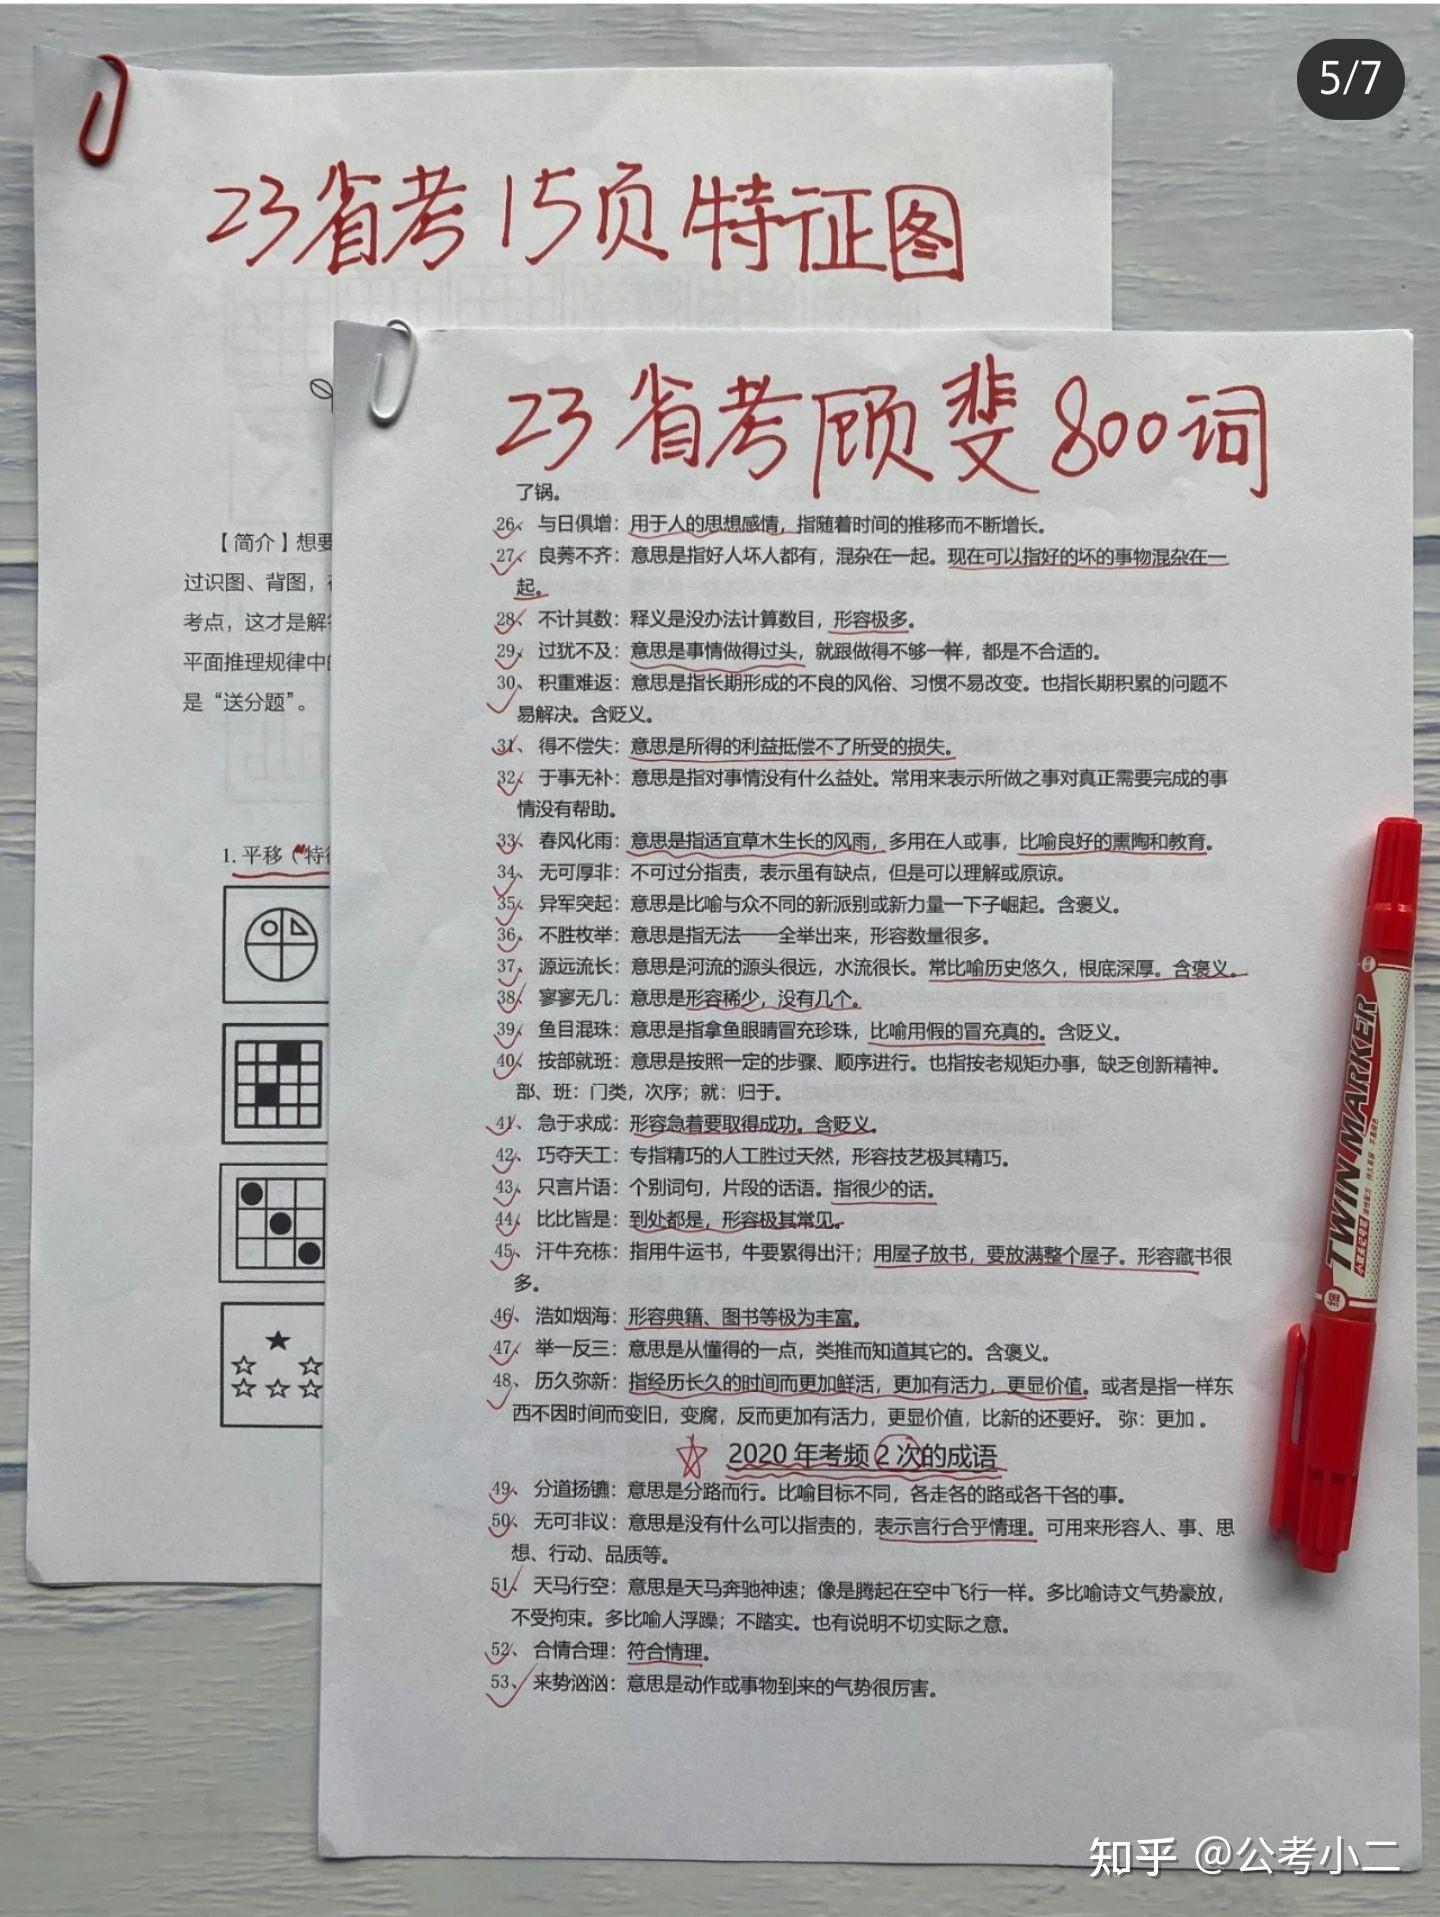 5/7
23省考15页特征图
【简介】想要
过识图、背图，
考点，这才是解
平面推理规律中
是“送分题”。
1. 平移（特征
23省考顾斐800词
了锅。
26、与日俱增：用于人的思想感情，指随着时间的推移而不断增长。
27、良莠不齐：意思是指好人坏人都有，混杂在一起。现在可以指好的坏的事物混杂在一
起。
28、不计其数：释义是没办法计算数目，形容极多。
29、过犹不及：意思是事情做得过头，就跟做得不够一样，都是不合适的。
30、积重难返：意思是指长期形成的不良的风俗、习惯不易改变。也指长期积累的问题不
易解决。含贬义。
31、得不偿失：意思是所得的利益抵偿不了所受的损失。
32、于事无补：意思是指对事情没有什么益处。常用来表示所做之事对真正需要完成的事
情没有帮助。
33、春风化雨：意思是指适宜草木生长的风雨，多用在人或事，比喻良好的熏陶和教育。
34、无可厚非：不可过分指责，表示虽有缺点，但是可以理解或原谅。
35、异军突起：意思是比喻与众不同的新派别或新力量一下子崛起。含褒义。
36、不胜枚举：意思是指无法一一全举出来，形容数量很多。
37、源远流长：意思是河流的源头很远，水流很长。常比喻历史悠久，根底深厚。含褒义。
38、寥寥无几：意思是形容稀少，没有几个。
39、鱼目混珠：意思是指拿鱼眼睛冒充珍珠，比喻用假的冒充真的。含贬义。
40、按部就班：意思是按照一定的步骤、顺序进行。也指按老规矩办事，缺乏创新精神。
部、班：门类，次序；就：归于。
41、急于求成：形容急着要取得成功。含贬义。
42、巧夺天工：专指精巧的人工胜过天然，形容技艺极其精巧。
43、只言片语：个别词句，片段的话语。指很少的话。
44、比比皆是：到处都是，形容极其常见。
45、汗牛充栋：指用牛运书，牛要累得出汗；用屋子放书，要放满整个屋子。形容藏书很
多。
46、浩如烟海：形容典籍、图书等极为丰富。
47、举一反三：意思是从懂得的一点，类推而知道其它的。含褒义。
48、历久弥新：指经历长久的时间而更加鲜活，更加有活力，更显价值。或者是指一样东
西不因时间而变旧，变腐，反而更加有活力，更显价值，比新的还要好。 弥：更加 。
2020 年考频 2 次的成语
49、分道扬镳：意思是分路而行。比喻目标不同，各走各的路或各干各的事。
50、无可非议：意思是没有什么可以指责的，表示言行合乎情理。可用来形容人、事、思
想、行动、品质等。
51、天马行空：意思是天马奔驰神速；像是腾起在空中飞行一样。多比喻诗文气势豪放，
不受拘束。多比喻人浮躁；不踏实。也有说明不切实际之意。
52、合情合理：符合情理。
53、来势汹汹：意思是动作或事物到来的气势很厉害。
TWIN MARKER
小双头记号笔
知乎 @公考小二